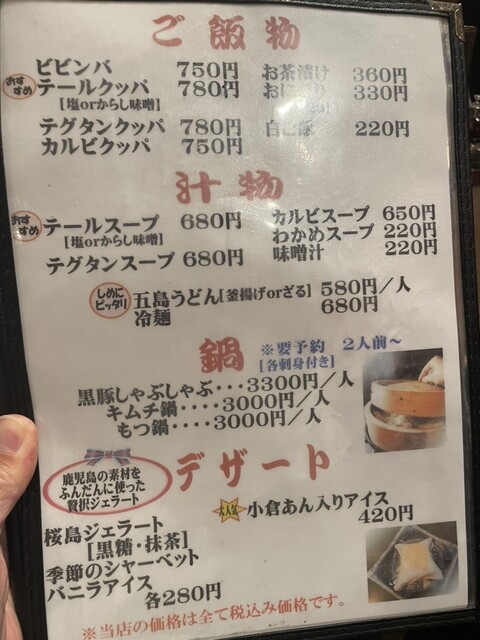 ご飯物
ビビンバ 750円
おすすめ
テールクッパ 780円
[塩orからし味噌]
テグタンクッパ 780円
カルビクッパ 750円
お茶漬け 360円
330円
220円
汁物
おすすめ
テールスープ 680円
[塩orからし味噌]
テグタンスープ 680円
カルビスープ 650円
わかめスープ 220円
味噌汁 220円
しめにピッタリ
五島うどん[釜揚げorざる] 580円/人
冷麺 680円
鍋
※要予約 2人前~
[各刺身付き]
黒豚しゃぶしゃぶ・・・3300円/人
キムチ鍋・・・・3000円/人
もつ鍋・・・・3000円/人
デザート
鹿児島の素材を
ふんだんに使った
贅沢ジェラート
大人気
小倉あん入りアイス
420円
桜島ジェラート
[黒糖・抹茶]
季節のシャーベット
バニラアイス
各280円
※当店の価格は全て税込み価格です。